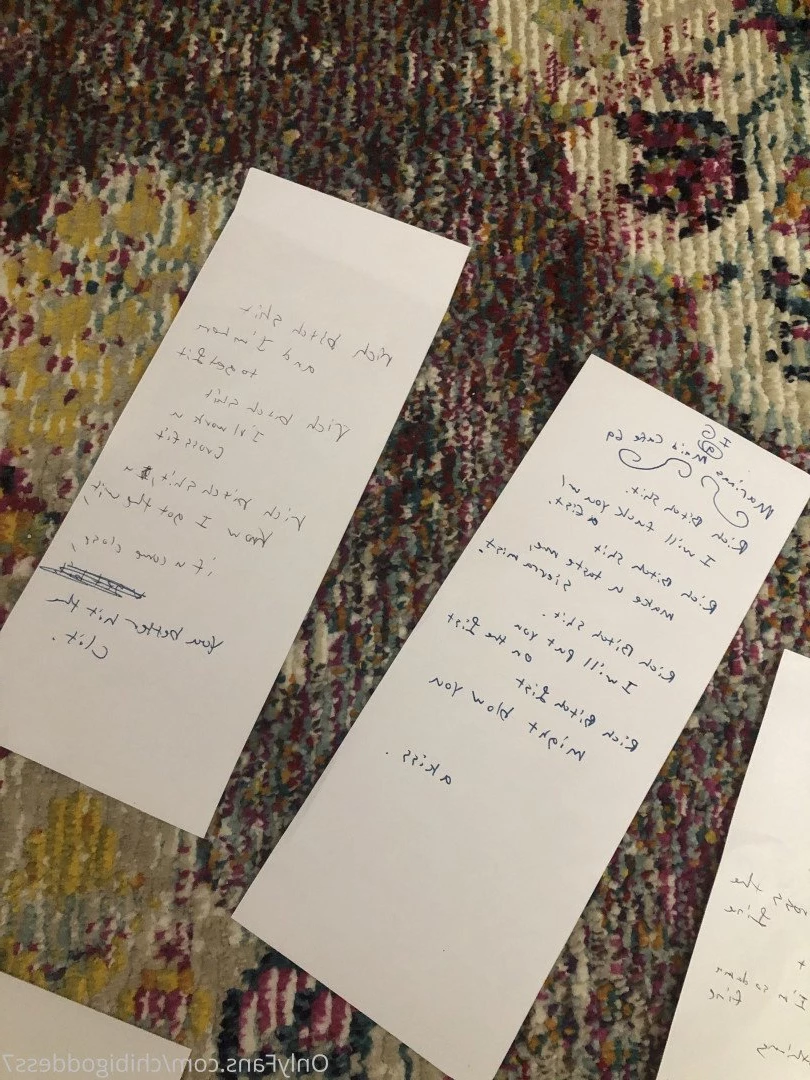 Rich bitch shit
and I'm
to get
Rich bitch shit
I'll work u
Crossfit
Rich bitch shit, u
know I got the wit,
if u come close,
You better hit the
Clit.
IG
@
Marinas Maid Cafe 69
Rich Bitch Shit.
I will fuck you w/
a fist.
Rich Bitch Shit
make u taste me,
Sierra mist.
Rich Bitch Shit.
I will put you
on the list
Rich Bitch List
Might blow you
a kiss.
the
fire
I'm so damn
fine
OnlyFans.com/chibigoddess7